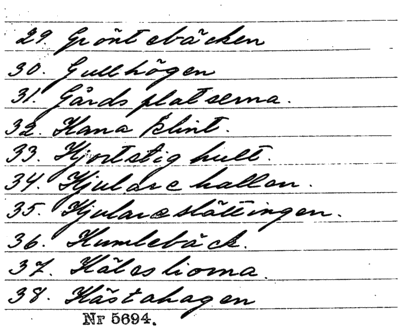 29. Gröntebäcken
30. Gullhögen
31. Gårdsplatserna.
32. Kana klint.
33. Hjortstighult.
34. Hjularehallen.
35. Hjulareslättingen.
36. Humlebäck.
37. Hålesliorna
38. Hästahagen
Nr 5694.